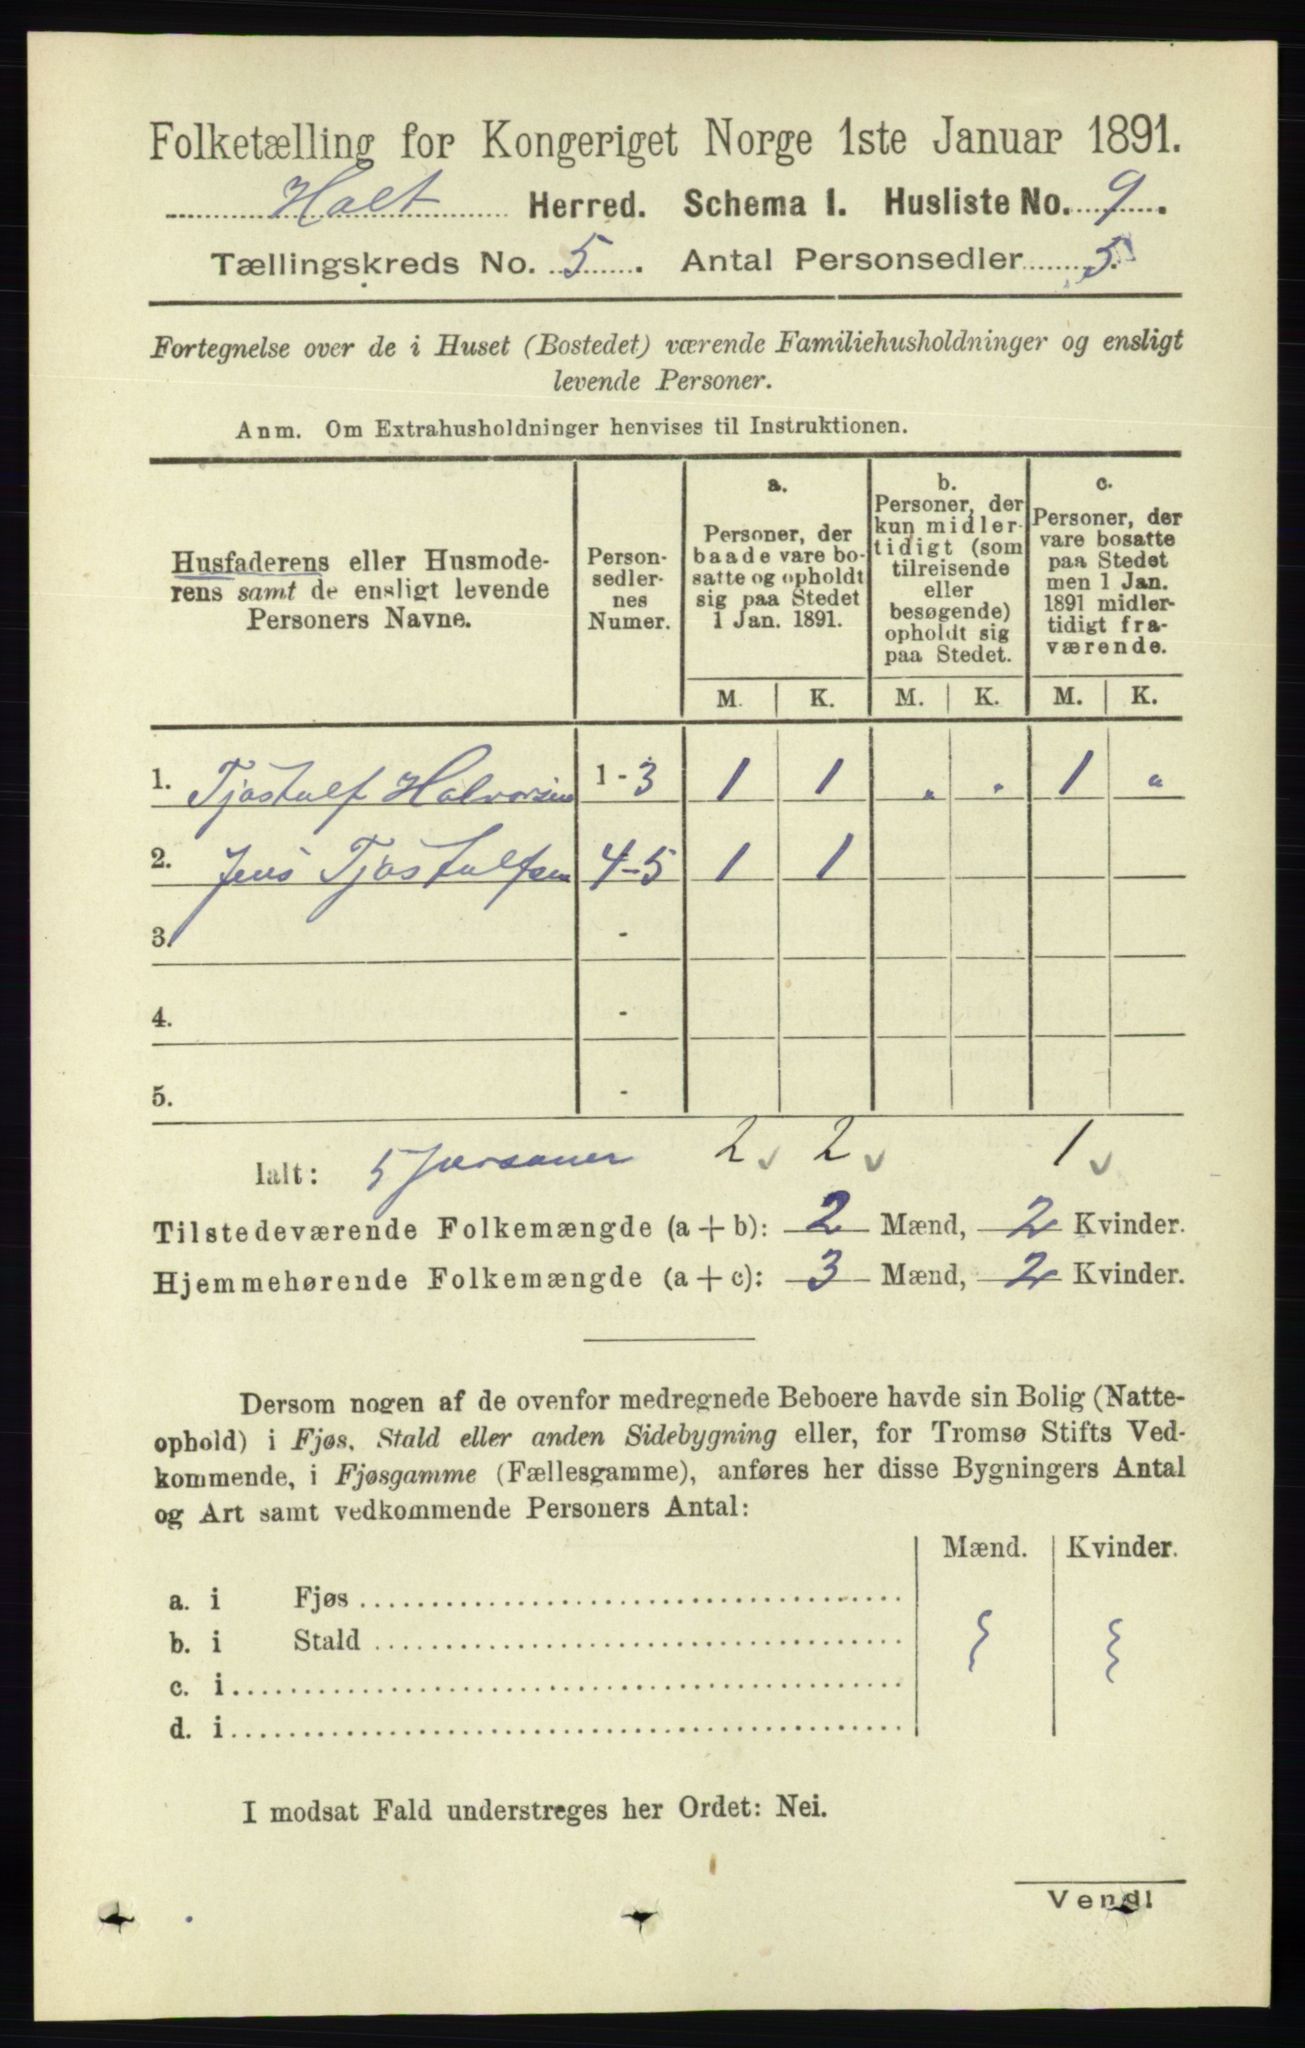 Folketælling for Kongeriget Norge 1ste Januar 1891.
Holt Herred. Schema 1. Husliste No. 9.
Tællingskreds No. 5. Antal Personsedler 5.
Fortegnelse over de i Huset (Bostedet) værende Familiehusholdninger og ensligt
levende Personer.
Anm. Om Extrahusholdninger henvises til Instruktionen.
Husfaderens eller Husmode-
rens samt de ensligt levende
Personers Navne.
Person-
sedler-
nes
Numer.
a.
Personer, der
baade vare bo-
satte og opholdt
sig paa Stedet
1 Jan. 1891.
b.
Personer, der
kun midler-
tidigt (som
tilreisende
eller
besøgende)
opholdt sig
paa Stedet.
c.
Personer, der
vare bosatte
paa Stedet
men 1 Jan.
1891 midler-
tidigt fra-
værende.
M. K. M. K. M. K.
1. Tjøstulf Halvorsen 1-3 1 1 " " 1 "
2. Jens Tjøstulfsen 4-5 1 1
3. -
4. -
5. -
Ialt: 5 Personer 2 2 1
Tilstedeværende Folkemængde (a + b): 2 Mænd, 2 Kvinder.
Hjemmehørende Folkemængde (a + c): 3 Mænd, 2 Kvinder.
Dersom nogen af de ovenfor medregnede Beboere havde sin Bolig (Natte-
ophold) i Fjøs, Stald eller anden Sidebygning eller, for Tromsø Stifts Ved-
kommende, i Fjøsgamme (Fællesgamme), anføres her disse Bygningers Antal
og Art samt vedkommende Personers Antal:
Mænd. Kvinder.
a. i Fjøs
b. i Stald
c. i
d. i
I modsat Fald understreges her Ordet: Nei.
Vend!